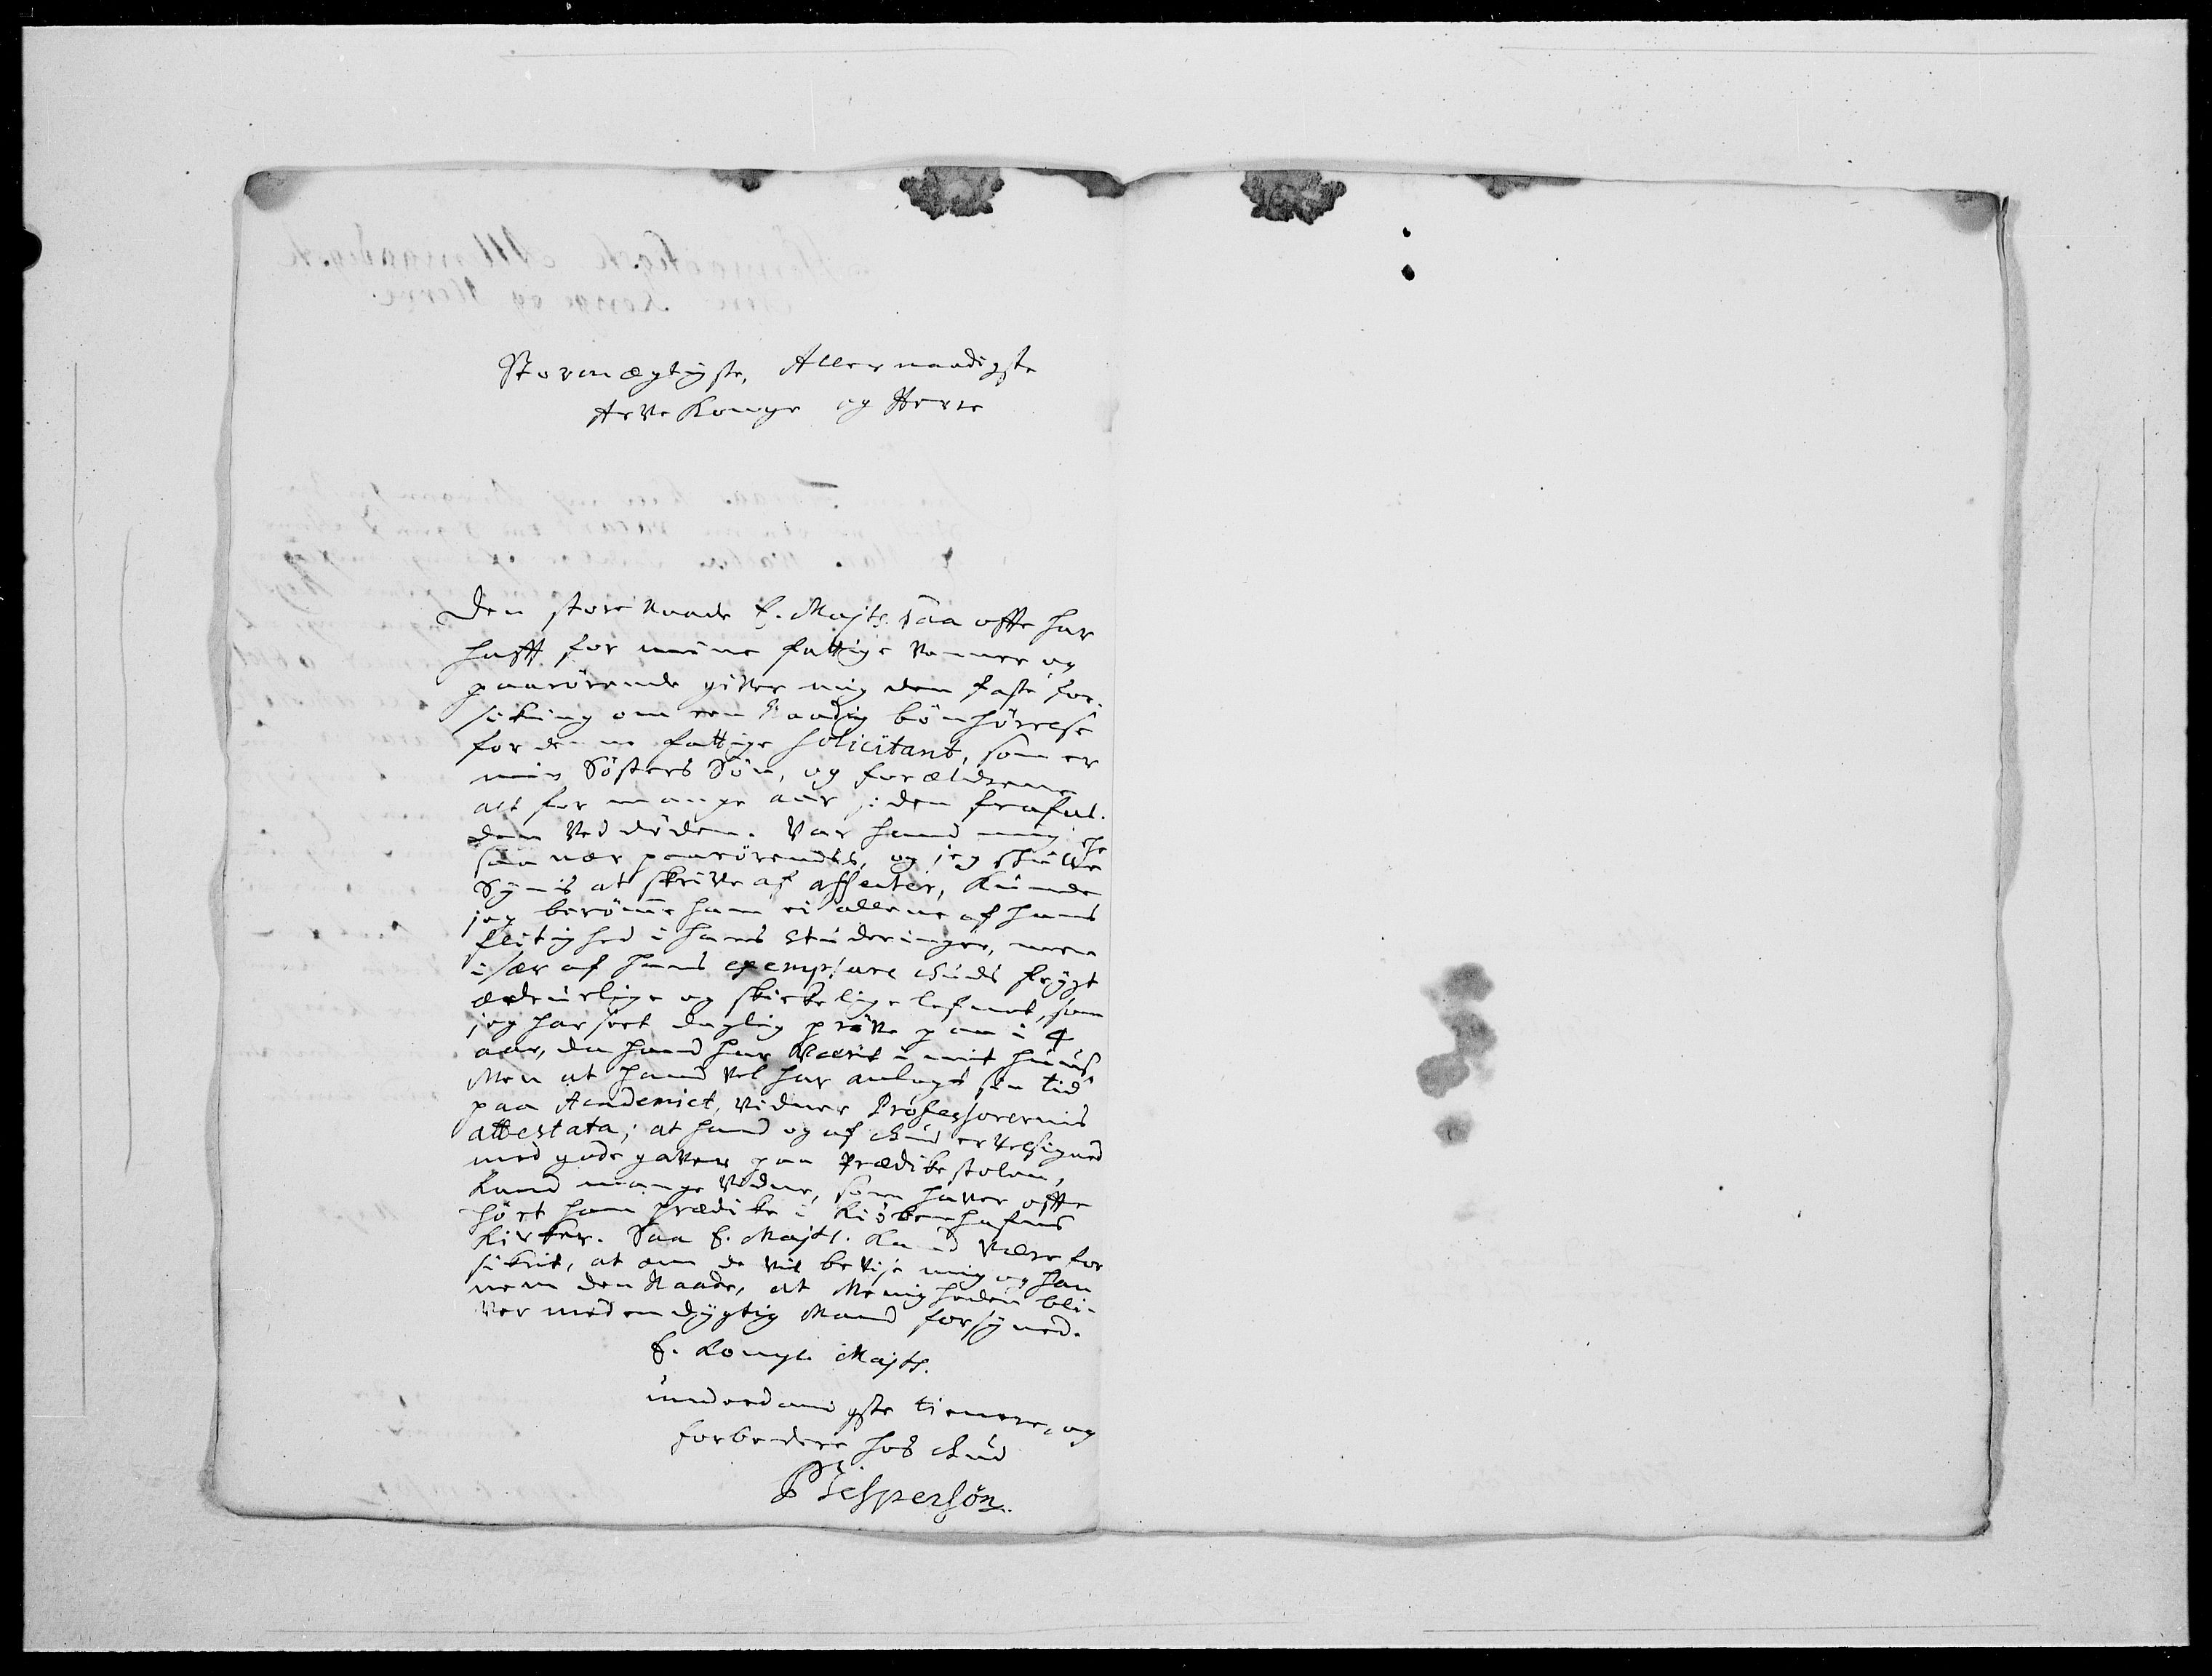 Stormægtigste, Allernaadigste
Arve Konge og Herre
Den store Naade E. Majts. saa offte har
hafft for mine fattige Venner og
paarörende giver mig den faste for-
sikring om een Naadig bönhörelse
for denne fattige Solicitant, som er
min Sösters Sön, og forældrene
alt for mange aar siden frafal-
den ved döden. Var hand mig iche
saa nær paarörendes, og jeg skulle
Synis at skrive af affecter, kunde
jeg berömme ham ei allene af hans
flitighed i hans Studeringer, men
især af hans exemplare Guds frÿgt
ærlige og skickelige lefnet, som
jeg har seet daglig pröve paa i 4
aar, da hand har værit i mit huus
Men at hand vel har anlagt sin tid
paa Academiet, vidner Professorernis
attestata; at hand og af Gud er velsigned
med gode gaver paa Prædikestolen,
kand mange vidne, som haver offte
hört ham prædike i Kiöbenhafns
Kirker. Saa E. Majts. kand være for
sikrit, at om de vil bevise mig og han-
nem den Naade, at Menigheden bli-
ver med en dÿgtig Mand forsÿned.
E. Kongl. Majts.
underdanigste tienere, og
forbedere hos Gud
P Jespersön